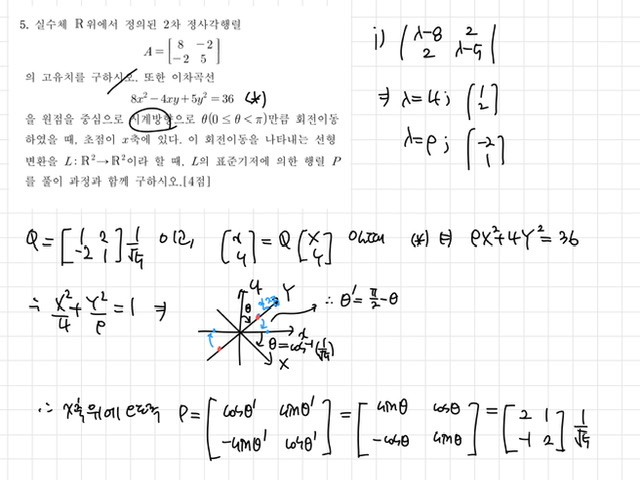 5. 실수체 ℝ위에서 정의된 2차 정사각행렬
A = [ 8 −2 ; −2 5 ]
의 고유치를 구하시오. 또한 이차곡선
8x² − 4xy + 5y² = 36 (*)
을 원점을 중심으로 시계방향으로 θ(0 ≤ θ < π)만큼 회전이동
하였을 때, 초점이 x축에 있다. 이 회전이동을 나타내는 선형
변환을 L : ℝ² → ℝ²이라 할 때, L의 표준기저에 의한 행렬 P
를 풀이 과정과 함께 구하시오.[4점]
i) | λ-8 2 ; 2 λ-5 |
⇒ λ=4 ; [ 1 ; 2 ]
λ=9 ; [ -2 ; 1 ]
Q = [ 1 2 ; -2 1 ] 1/√5 이고, [ x ; y ] = Q [ X ; Y ] (*) ⇔ 9X²+4Y² = 36
∴ X²/4 + Y²/9 = 1 ⇒
y
Y
θ
x
X
θ = cos⁻¹(1/√5)
∴ θ' = π/2 - θ
∴ x축위에 P = [ cosθ' sinθ' ; -sinθ' cosθ' ] = [ sinθ cosθ ; -cosθ sinθ ] = [ 2 1 ; -1 2 ] 1/√5